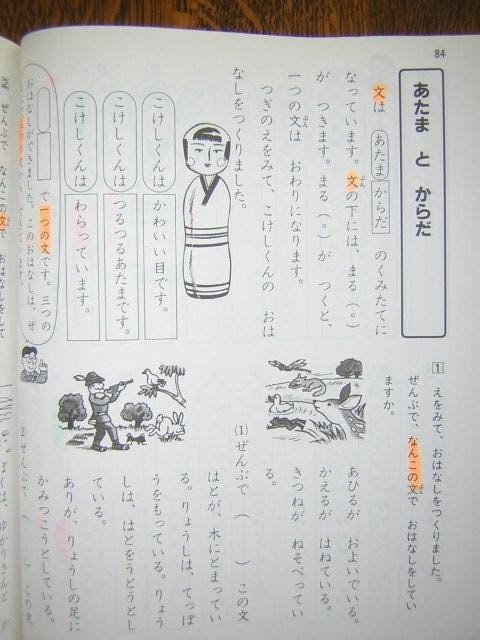 84
あたま と からだ
文は あたま からだ のくみたてに
なっています。文の下には、まる(。)
が つきます。まる(。)が つくと、
一つの文は おわりになります。
つぎのえをみて、こけしくんの おは
なしをつくりました。
こけしくんは かわいい目です。
こけしくんは つるつるあたまです。
こけしくんは わらっています。
で 一つの文です。三つの
おはなしができました。このおはなしは、ぜ
1 えをみて、おはなしをつくりました。
ぜんぶで、なんこの文で おはなしをしてい
ますか。
あひるが およいでいる。
かえるが はねている。
きつねが ねそべってい
る。
(1) ぜんぶで ( ) この文
はとが、木にとまってい
る。りょうしは、てっぽ
うをもっている。りょう
しは、はとをうとうとし
ている。
ありが、りょうしの足に
かみつこうとしている。
(2) ぜんぶで ( ) この文
② ぜんぶで なんこの文で おはなしをして